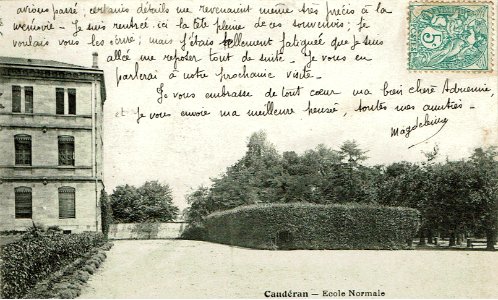 avions passé, certains détails me revenaient même très précis à la
mémoire - Je suis rentrée ici la tête pleine de ces souvenirs; Je
voulais vous les écrire; mais j'étais tellement fatiguée que je suis
allé me reposer tout de suite. - Je vous en
parlerai à notre prochaine visite -
Je vous embrasse de tout cœur ma bien chère Adrienne,
et Je vous envoie ma meilleure pensée, toutes mes amitiés -
Magdeleine
5
Caudéran — Ecole Normale